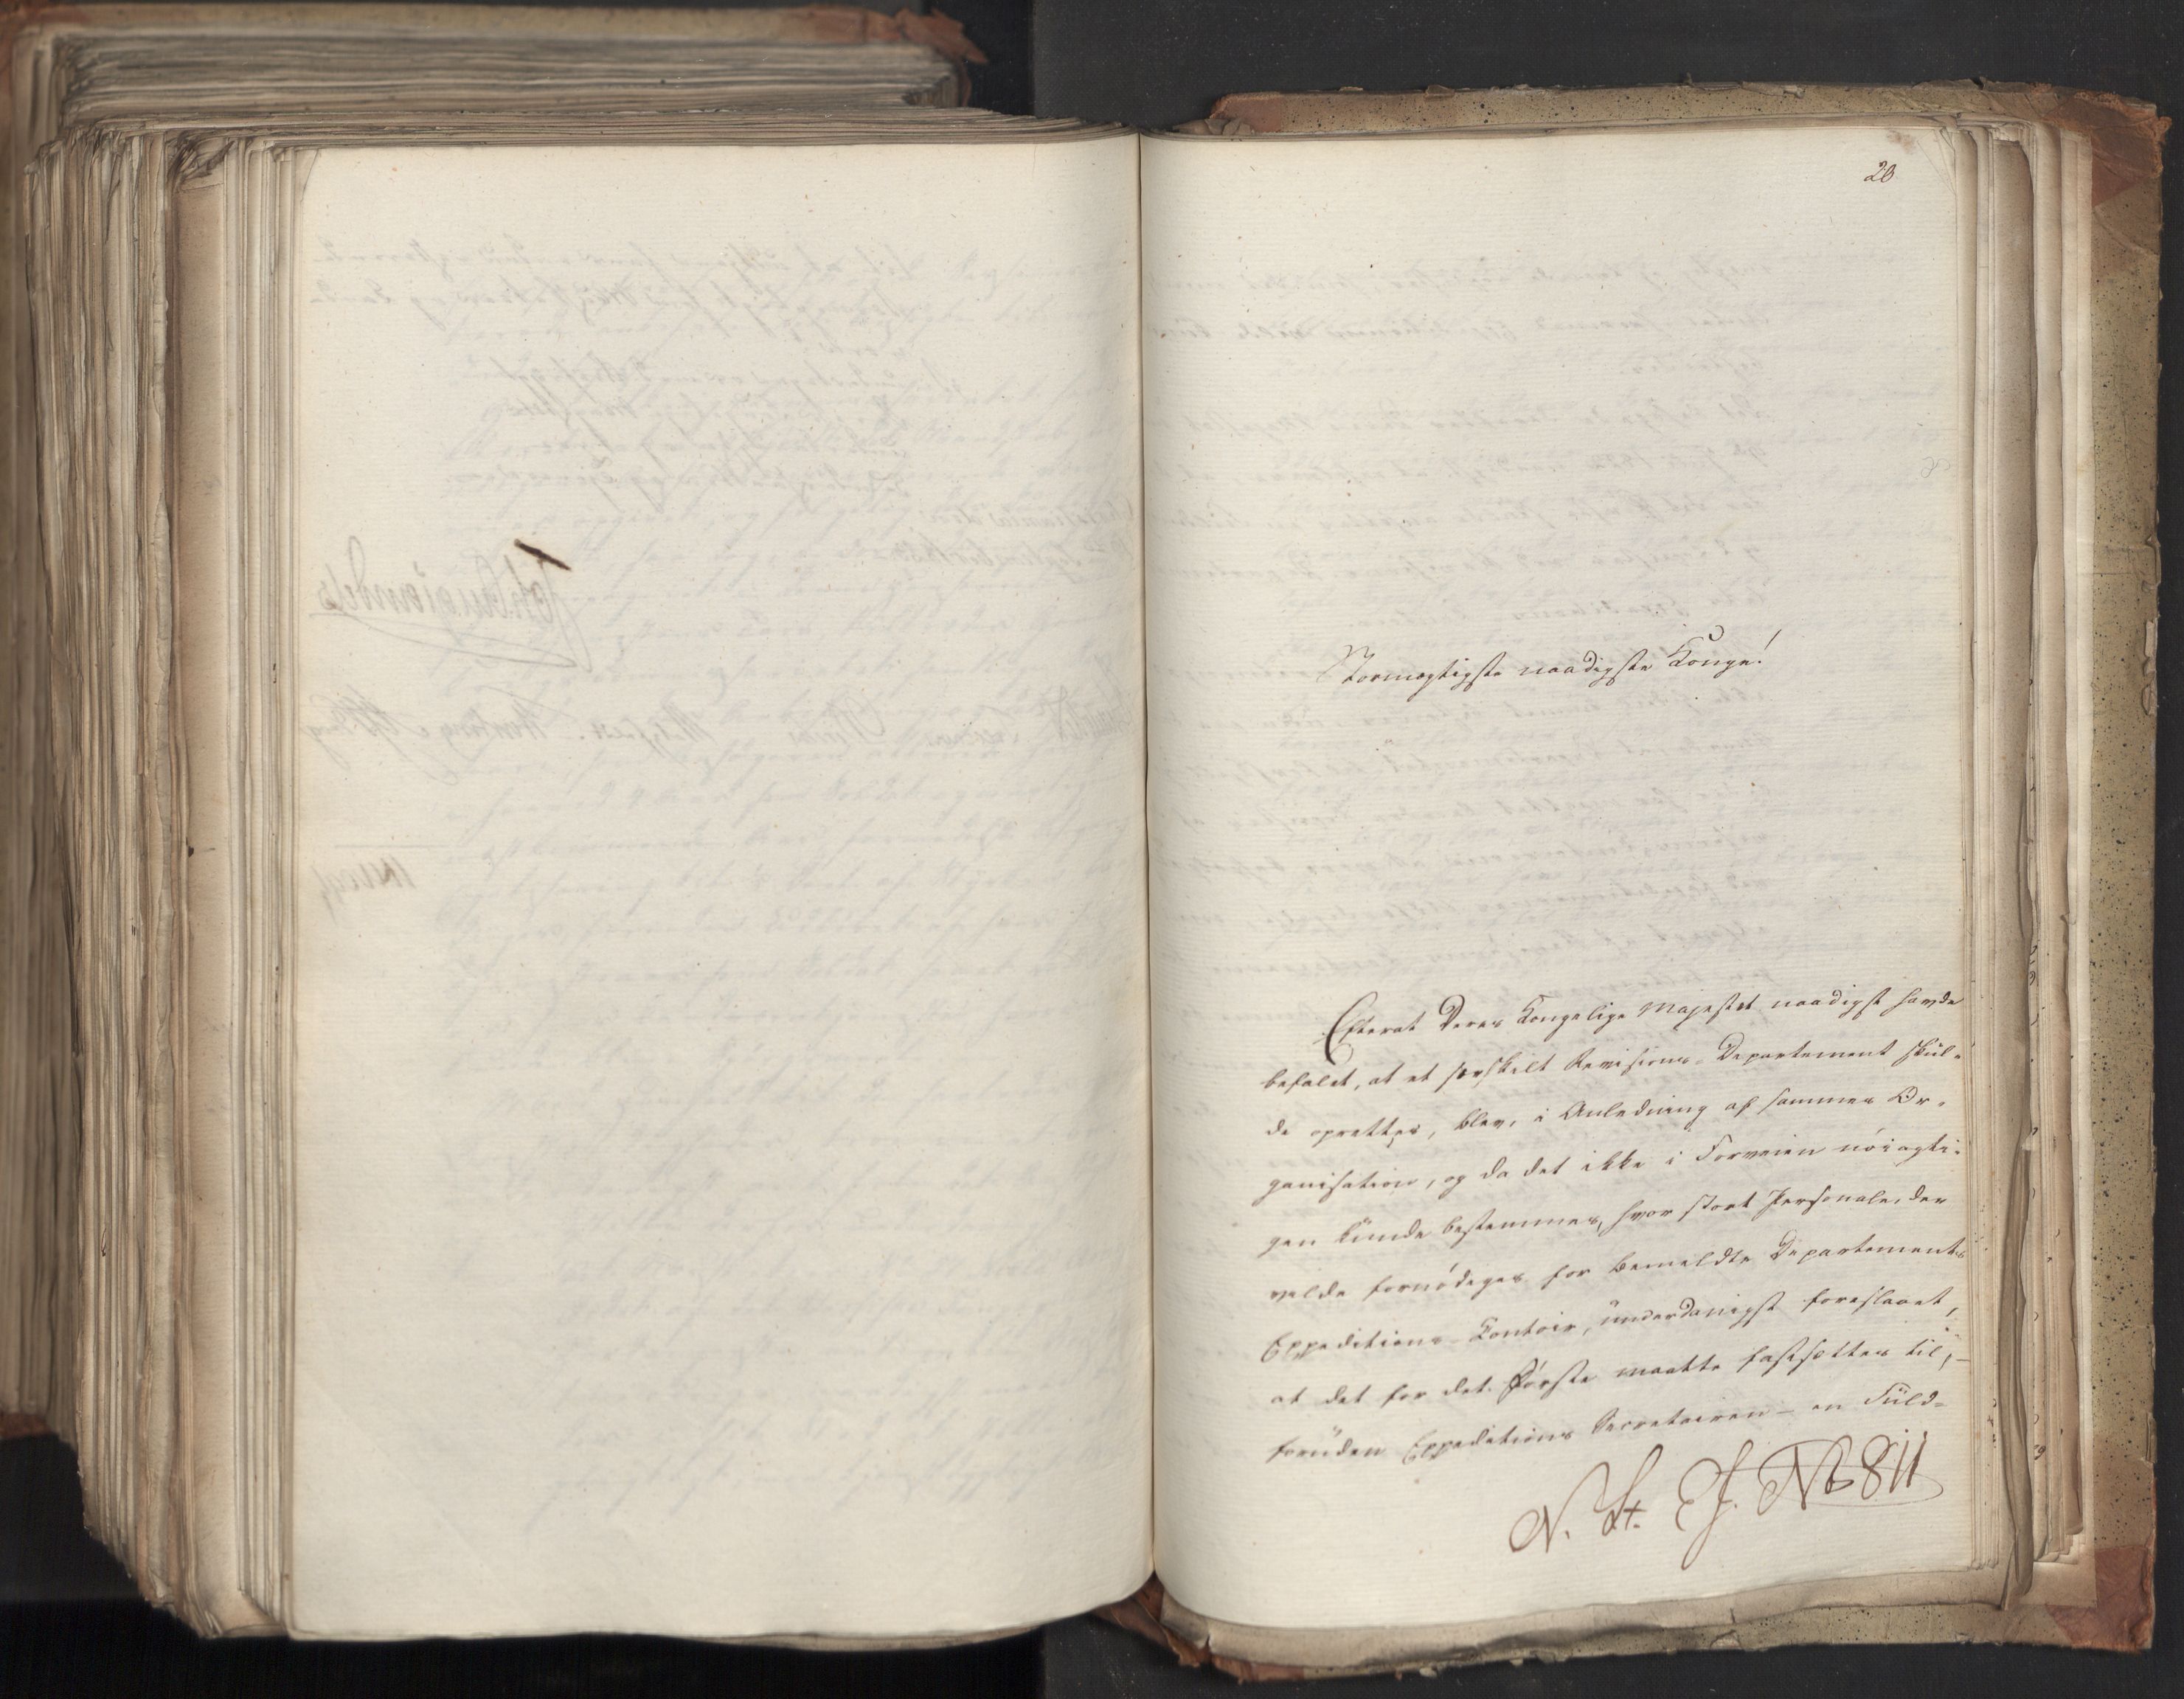 20
Stormægtigste naadigste Konge!
Efterat Deres Kongelige Majestet naadigst havde
befalet, at et særskilt Revisions-Departement skul-
de oprettes, blev, i Anledning af sammes Or-
ganisation, og da det ikke i Forveien nöiagti-
gen kunde bestemmes, hvor stort Personale, der
vilde fornödeges for bemeldte Departements
Expeditions-Contoir, underdanigst foreslaaet,
at det for det Förste maatte fastsættes til,-
foruden Expeditions Secretairen - en Fuld-
N. St. J. No 811